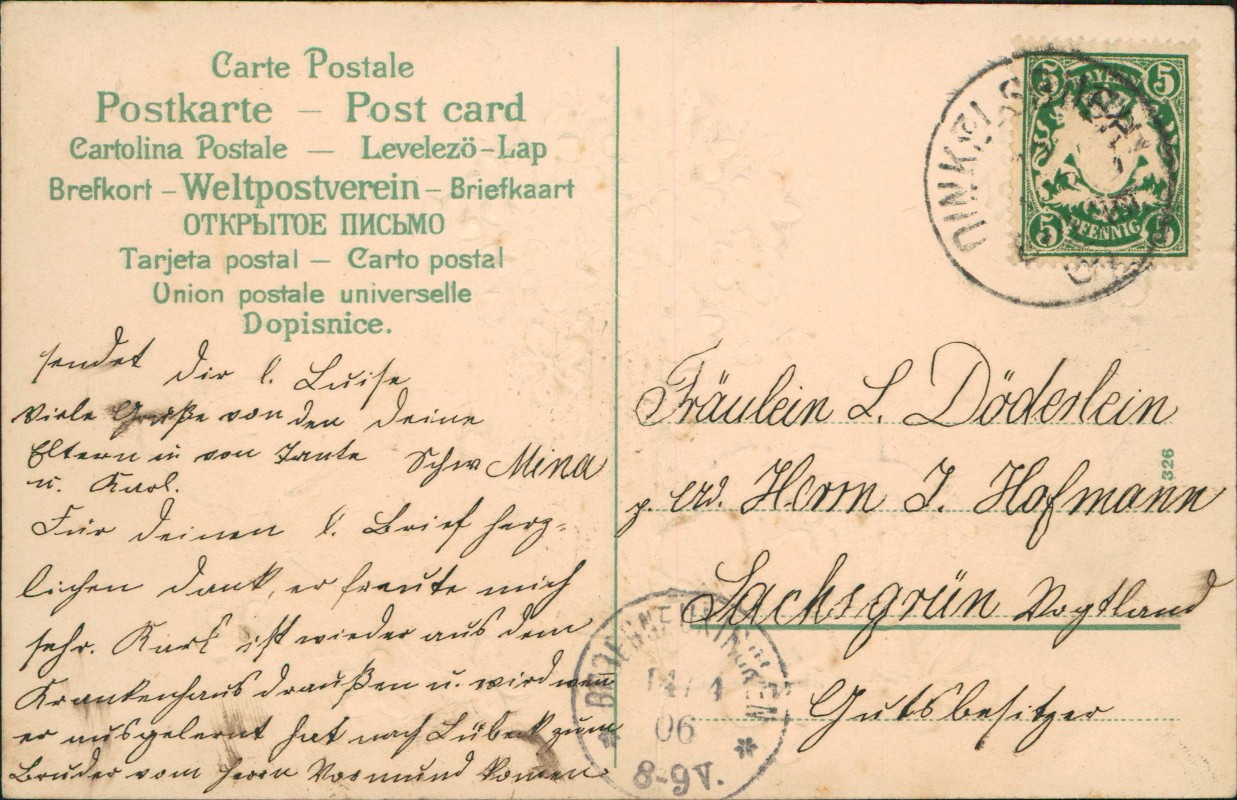 Carte Postale
Postkarte – Post card
Cartolina Postale — Levelező-Lap
Brefkort – Weltpostverein – Briefkaart
ОТКРЫТОЕ ПИСЬМО
Tarjeta postal – Carto postal
Union postale universelle
Dopisnice.
sendet Dir l. Luise
Viele Grüße von den deine
Eltern u von Tante Schw Mina
u. Karl.
Für deinen l. Brief herz-
lichen Dank, er freute mich
sehr. Karl ist wieder aus dem
Krankenhaus draußen u. wird wen
er ausgelernt hat nach Lübeck zum
Bruder vom Herrn Vormund komen
DINKELSBÜHL
BAYERN
5 5
5 5
PFENNIG
Fräulein L. Döderlein
p. Ad. Herrn J. Hofmann
Sachsgrün Vogtland
Gutsbesitzer
326
14/4
06
8-9V.